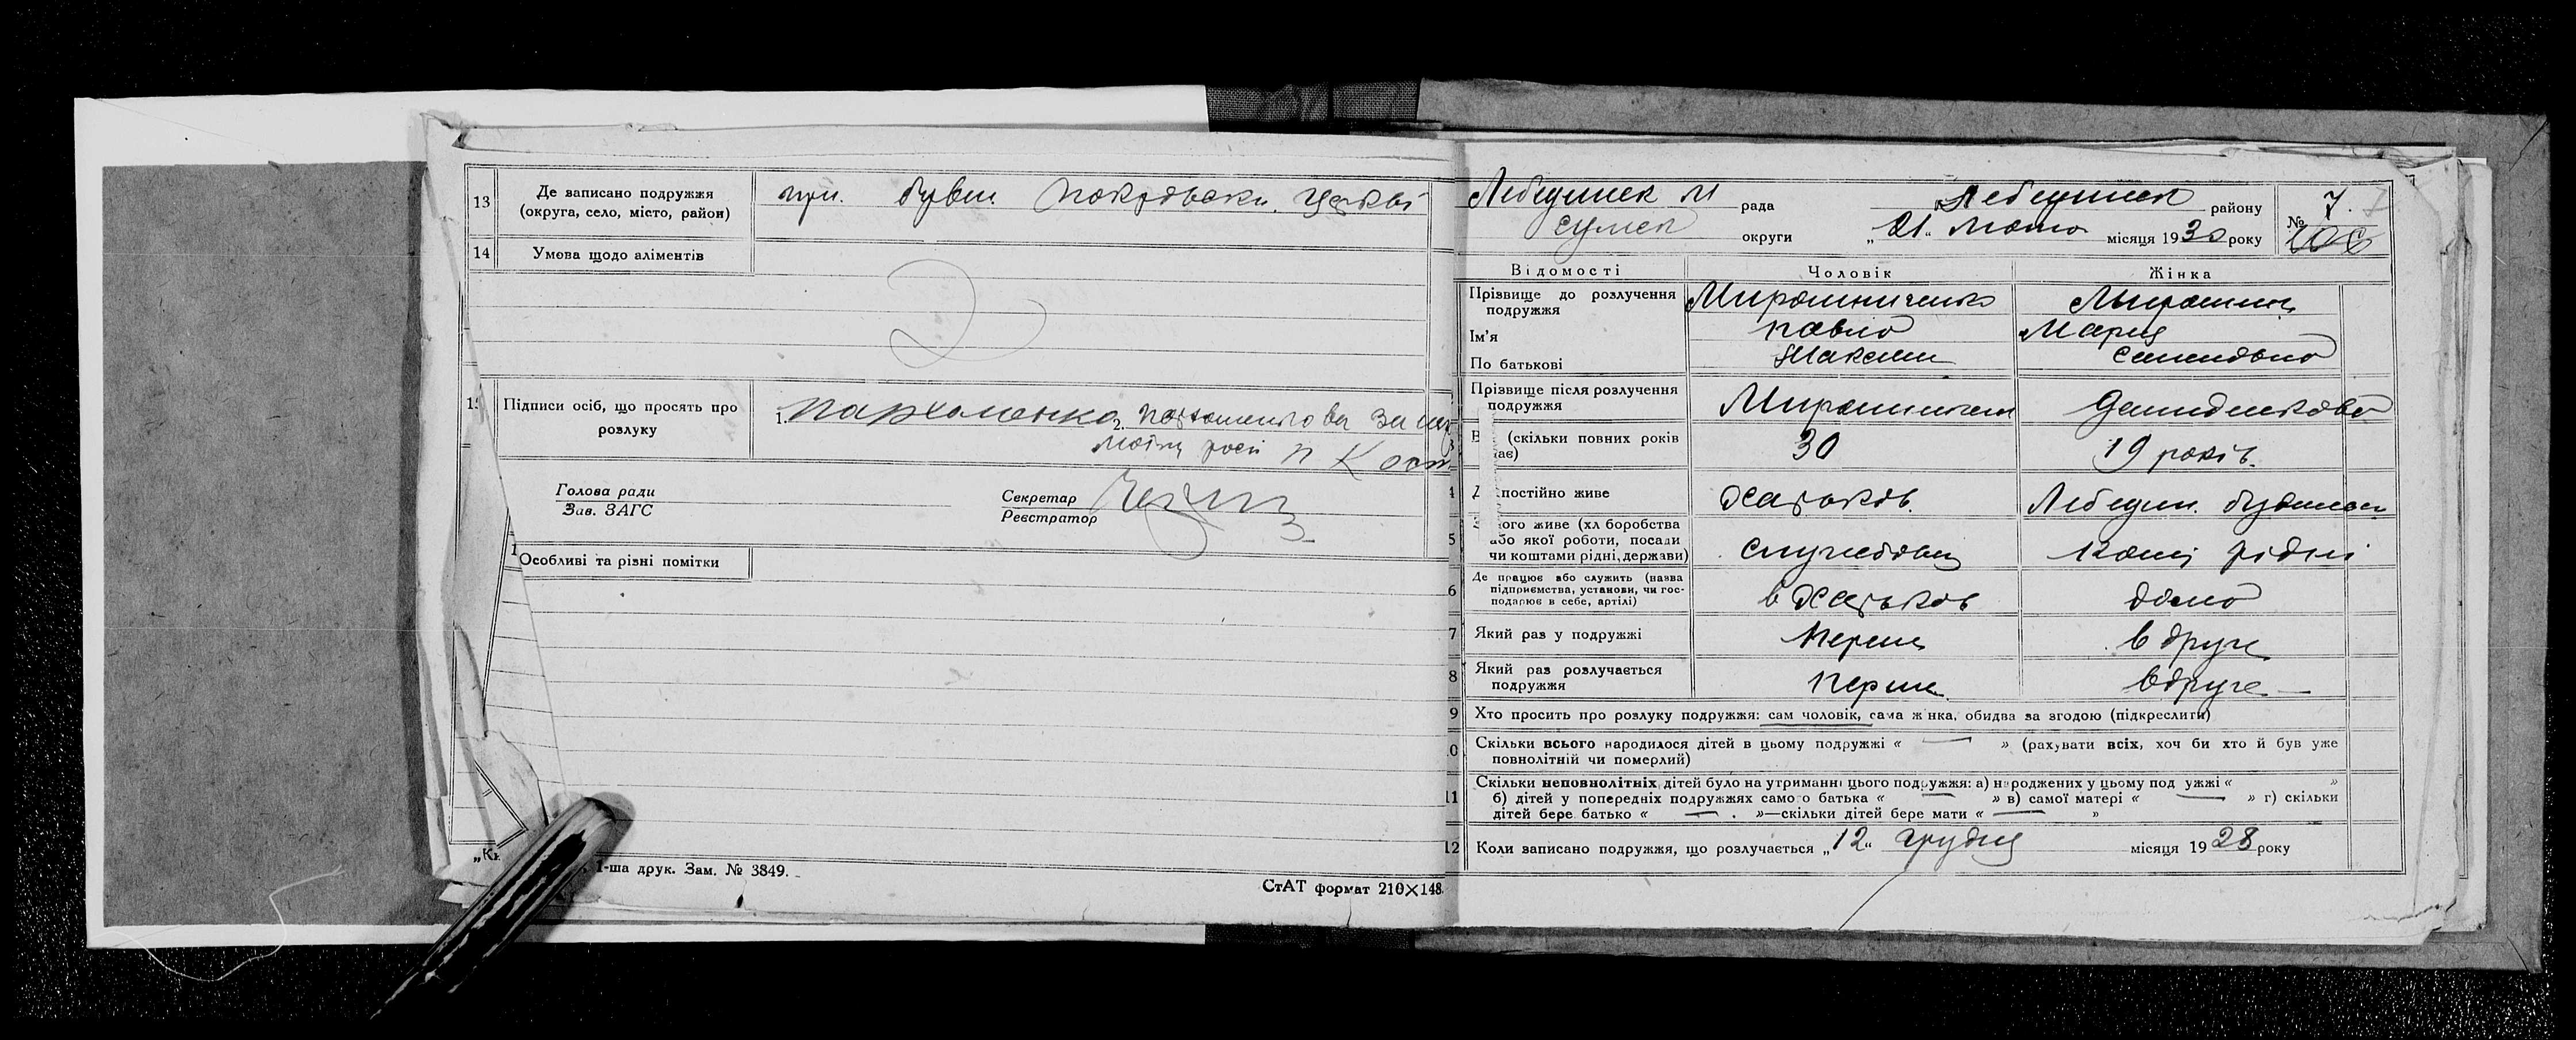 13 Де записано подружжя
(округа, село, місто, район)
при. бувш. Покровськ. церкві
14 Умова щодо аліментів
Підписи осіб, що просять про
розлуку
1. Пархоменко 2.
Голова ради
Зав. ЗАГС
Секретар
Реєстратор
Особливі та різні помітки
1-ша друк. Зам. № 3849.
СтАТ формат 210×148
Лебединск М рада Лебединск району № 7.
Сумск округи „21“ лютого місяця 1930 року
Відомості Чоловік Жінка
Прізвище до розлучення
подружжя
Мирошниченко Мирошнич
Ім'я Павло Мария
По батькові Максим Семеновна
Прізвище після розлучення
подружжя
(скільки повних років
має)
30 19 років.
постійно живе Харьков. Лебедин.
З чого живе (хл боробства
або якої роботи, посади
чи коштами рідні, держави)
Службовец Кошт рідні
Де працює або служить (назва
підприємства, установи, чи гос-
подарює в себе, артілі)
в Харьков дома
7 Який раз у подружжі Перше вдруге
8 Який раз розлучається
подружжя
Перше. вдруге
9 Хто просить про розлуку подружжя: сам чоловік, сама жінка, обидва за згодою (підкреслити)
Скільки всього народилося дітей в цьому подружжі « — » (рахувати всіх, хоч би хто й був уже
повнолітній чи померлий)
11 Скільки неповнолітніх дітей було на утриманні цього подружжя: а) народжених у цьому под ужжі « »
б) дітей у попередніх подружжях само о батька « — » в) самої матері « — » г) скільки
дітей бере батько « — » — скільки дітей бере мати « — »
12 Коли записано подружжя, що розлучається „12“ грудня місяця 1928 року